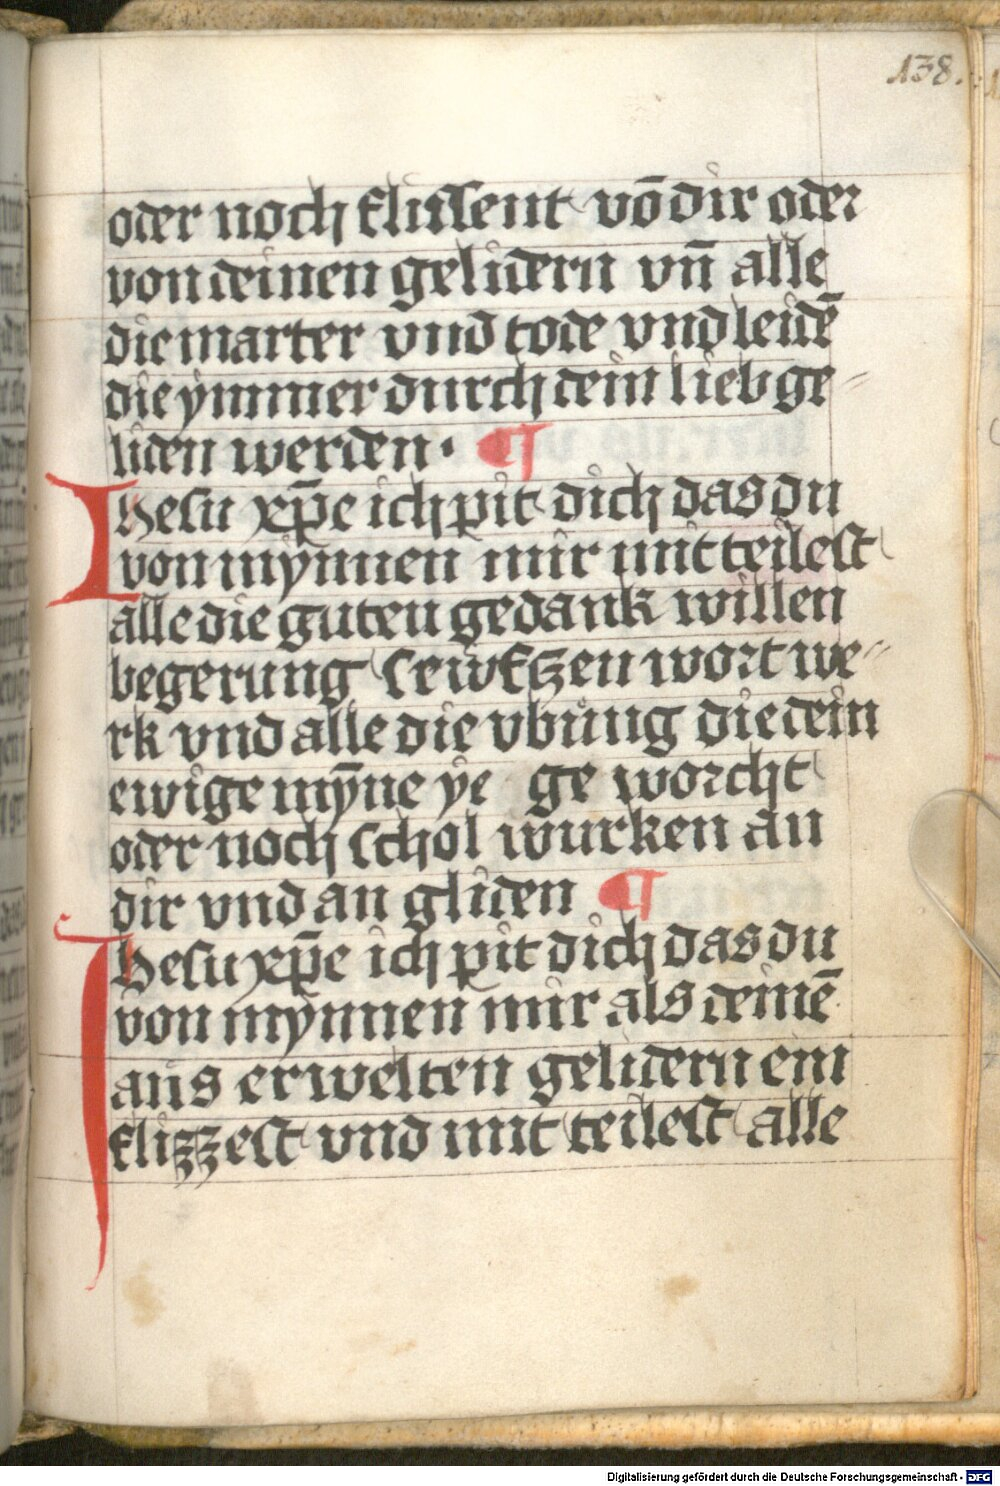 138.
oder noch flissent võ dir oder
von deinen gelidern vñ alle
die marter vnd tode vnd leidẽ
die ymmer durch dein lieb ge-
liden werden · ¶
Ihesu xp̄e ich pit dich das du
von mynnen mir mitteilest
alle die guten gedank willen
begerung sewftzen wort we-
rk vnd alle die vbung die dein
ewige mȳne ye ge worcht
oder noch schol wurken an
dir vnd an gliden ¶
Ihesu xp̄e ich pit dich das du
von mynnen mir als deinẽ
aus erwelten gelidern ein
flizzest vnd mit teilest alle
Digitalisierung gefördert durch die Deutsche Forschungsgemeinschaft - DFG